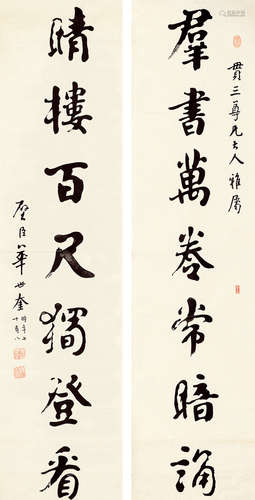 貫三尊兄大人雅屬
羣書萬卷常暗誦
晴樓百尺獨登看
璧臣華世奎